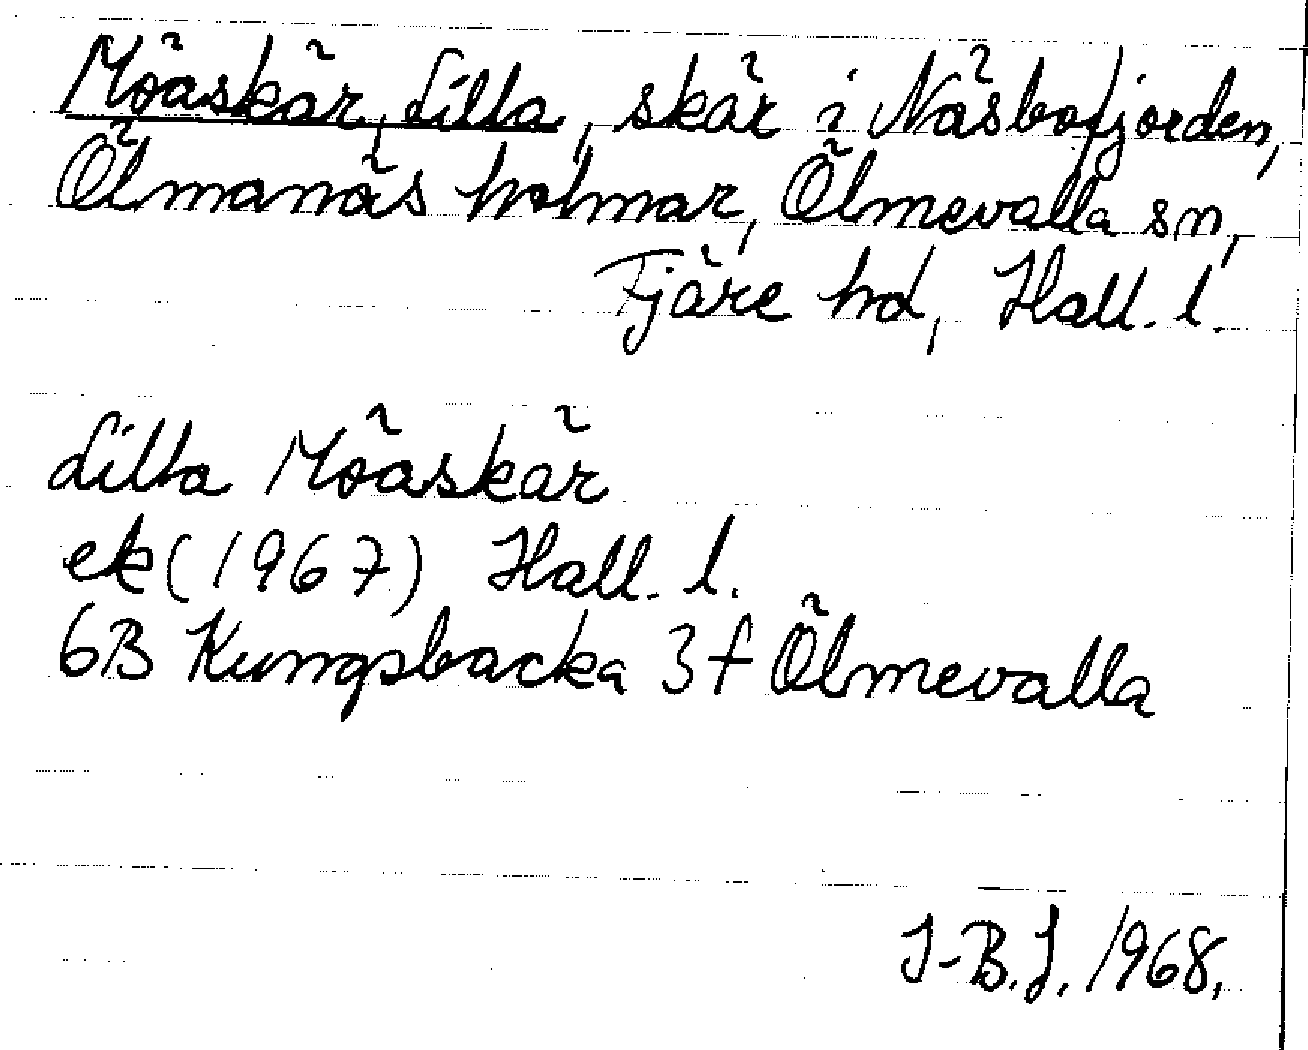 Möaskär, Lilla, skär i Näsbofjorden,
Ölmanäs holmar, Ölmevalla sn,
Fjäre hd, Hall. l.
Lilla Möaskär
ek (1967) Hall. l.
6B Kungsbacka 3f Ölmevalla
I-B. J. 1968.